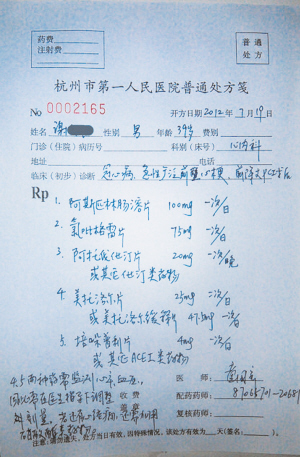 药费
注射费
普通
处方
杭州市第一人民医院普通处方笺
No 0002165 开方日期 2012年 7月 19日
姓名 谢 性别 男 年龄 39岁 费别
门诊（住院）病历号 科别（床号） 心内科
地址 电话
临床（初步）诊断 冠心病、急性广泛前壁心梗
Rp
1. 阿斯匹林肠溶片 100mg 一次/日
2. 氯吡格雷片 75mg 一次/日
3. 阿托伐他汀片 20mg 一次/晚
或其它他汀类药物
4. 美托洛尔片 25mg 二次/日
或美托洛尔缓释片 47.5mg 一次/日
5. 培哚普利片 4mg 一次/日
或其它ACEI类药物
4.5两种需监测心率血压，
医师：
收费
盖章
配药药师： 87065701-20681
复核药师：
注意：请勿遗失，处方当日有效，因特殊情况，该处方有效为 天(签名： )。